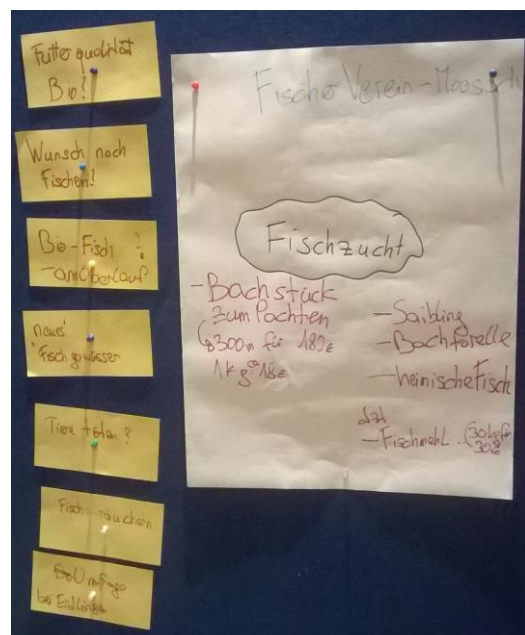 Futterqualität
Bio?
Wunsch nach
Fischen?
Bio-Fisch ?
- am Oberlauf
neues
Fischgewässer
Tiere töten?
Fische räuchen
Umfrage
bei
Fischer Verein-Moossch
Fischzucht
- Bachstück
zum Pachten
300m für 180€
1kg 18€
- Saibling
- Bachforelle
- heinische Fisch
- Fischmehl (30kg für
30€)